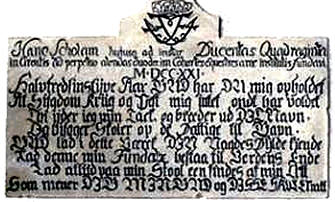 Hanc Scholam instar Ducentas Quadraginta
in Circulis ad perpetuo alendas duodecim Cohortes equestres arte institutis fundavi
M·DCCXXI·
Halvfredsinstyve Aar GUD har DU mig opholdet
At Sygdom Krüg og Pest mig intet ondt har voldet
Thi yder ieg min Tack og breeder ud DIT Navn
Og bygger Skoler op de Fattige til Gavn
GUD lad i dette Verck DIN Naades Fylde kiende
Lad denne min Fundatz bestaa til Verdens Ende
Lad altid paa min Stool een findes af min Ætt
Som mener DIG MIN GUD og DISSE SKOLER rætt